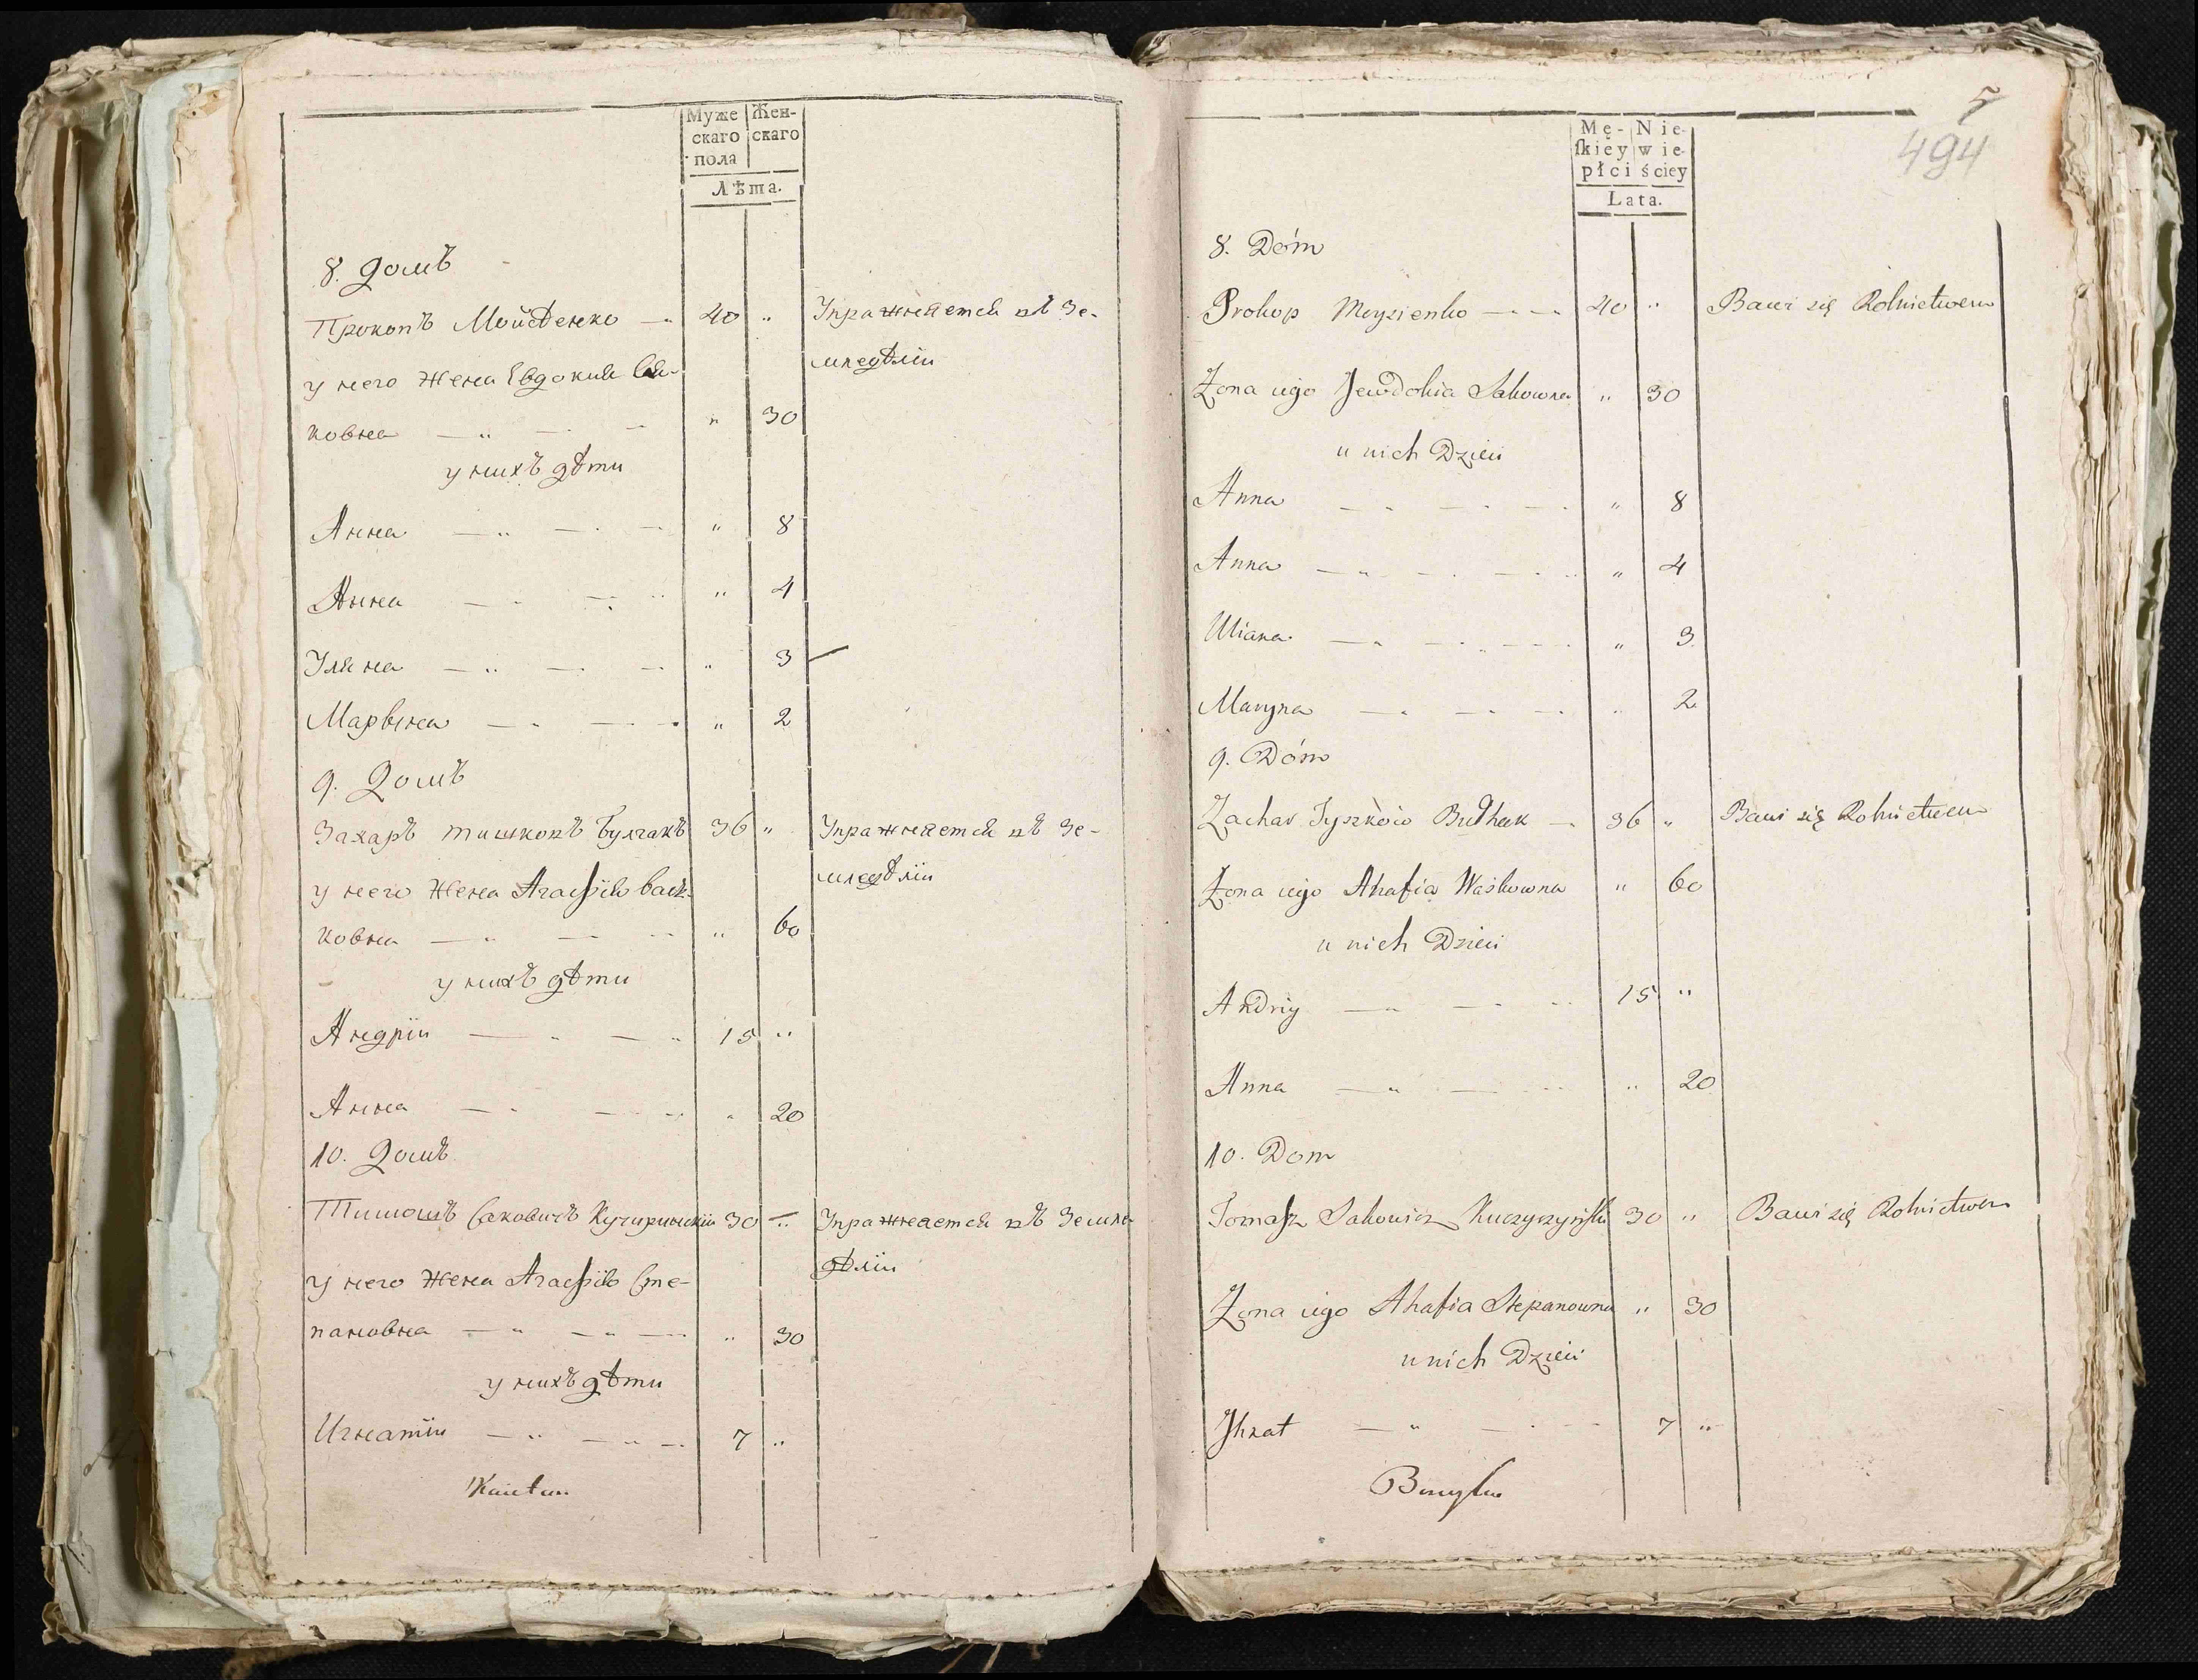 Муже Жен-
скаго скаго
пола
Лѣта.
8. Домъ
Прокопъ Мойсѣенко — 40 „ Упражняется въ Зе-
мледѣліи
у него жена Евдокия Са-
ковна — „ — „ 30
у нихъ дѣти
Анна — „ — „ 8
Анна — „ — „ 4
Уляна — „ — „ 3
Марына — „ — „ 2
9. Домъ
Захаръ Тишковъ Булгакъ 36 „ Упражняется въ Зе-
мледѣліи
у него жена Агафія Вась-
ковна — „ — „ 60
у нихъ дѣти
Андрій — „ — 15 „
Анна — „ — „ 20
10. Домъ
Тимошъ Саковичъ Кучиринскій 30 „ Упражняется въЗемле-
дѣліи
у него жена Агафія Сте-
пановна — „ — „ 30
у нихъ дѣти
Игнатій — „ — 7 „
5
494
Mę- Nie-
ſkiey wie-
płci ściey
Lata.
8. Dóm
Prokop Moysienko — 40 „ Bawi się Rolnictwem
Żona iego Jewdokia Sakowna „ 30
u nich Dzieci
Anna — „ — „ 8
Anna — „ — „ 4
Uliana — „ — „ 3
Maryna — „ — „ 2
9. Dóm
Zachar Tyszków Bułhak — 36 „ Bawi się Rolnictwem
Żona iego Ahafia Waśkowna „ 60
u nich Dzieci
Andriy — „ — 15 „
Anna — „ — „ 20
10. Dom
Tomaſz Sakowicz Kuczyryński 30 „ Bawi się Rolnictwem
Żona iego Ahafia Stepanowna „ 30
u nich Dzieci
Ihnat — „ — 7 „